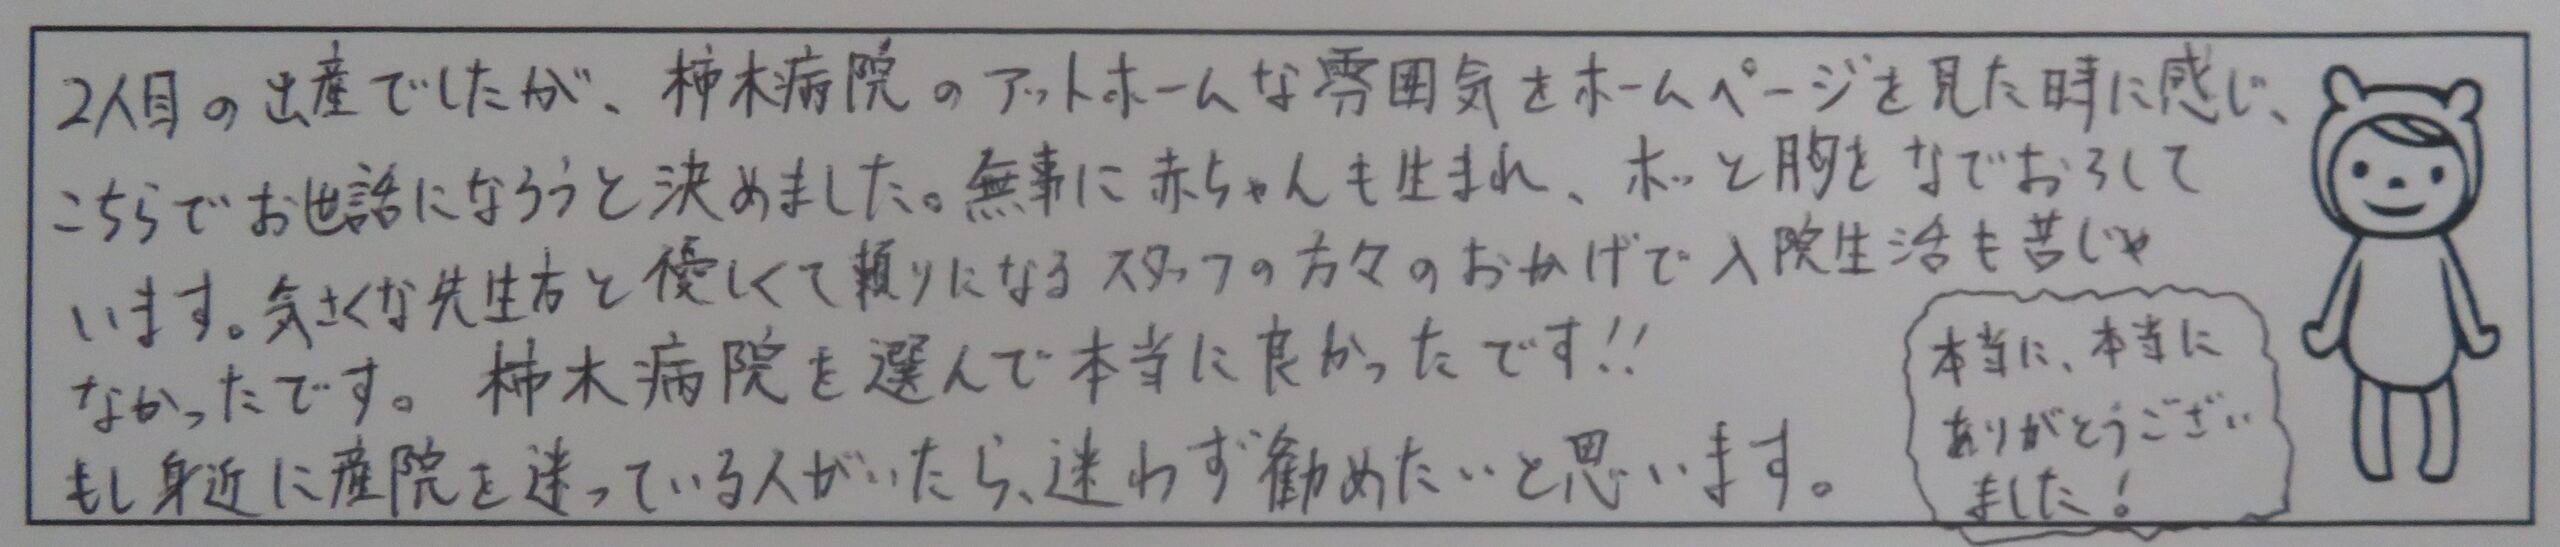 2人目の出産でしたが、柿木病院のアットホームな雰囲気をホームページを見た時に感じ、
こちらでお世話になろうと決めました。無事に赤ちゃんも生まれ、ホッと胸をなでおろして
います。気さくな先生方と優しくて頼りになるスタッフの方々のおかげで入院生活も苦じゃ
なかったです。柿木病院を選んで本当に良かったです!!
もし身近に産院を迷っている人がいたら、迷わず勧めたいと思います。
本当に、本当に
ありがとうござい
ました!